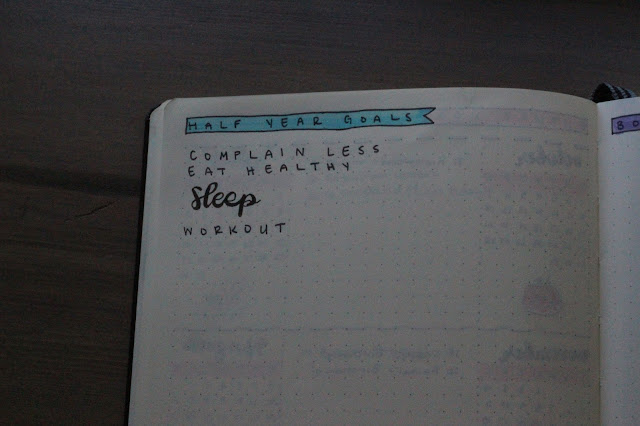 HALF YEAR GOALS
COMPLAIN LESS
EAT HEALTHY
Sleep
WORKOUT
BO